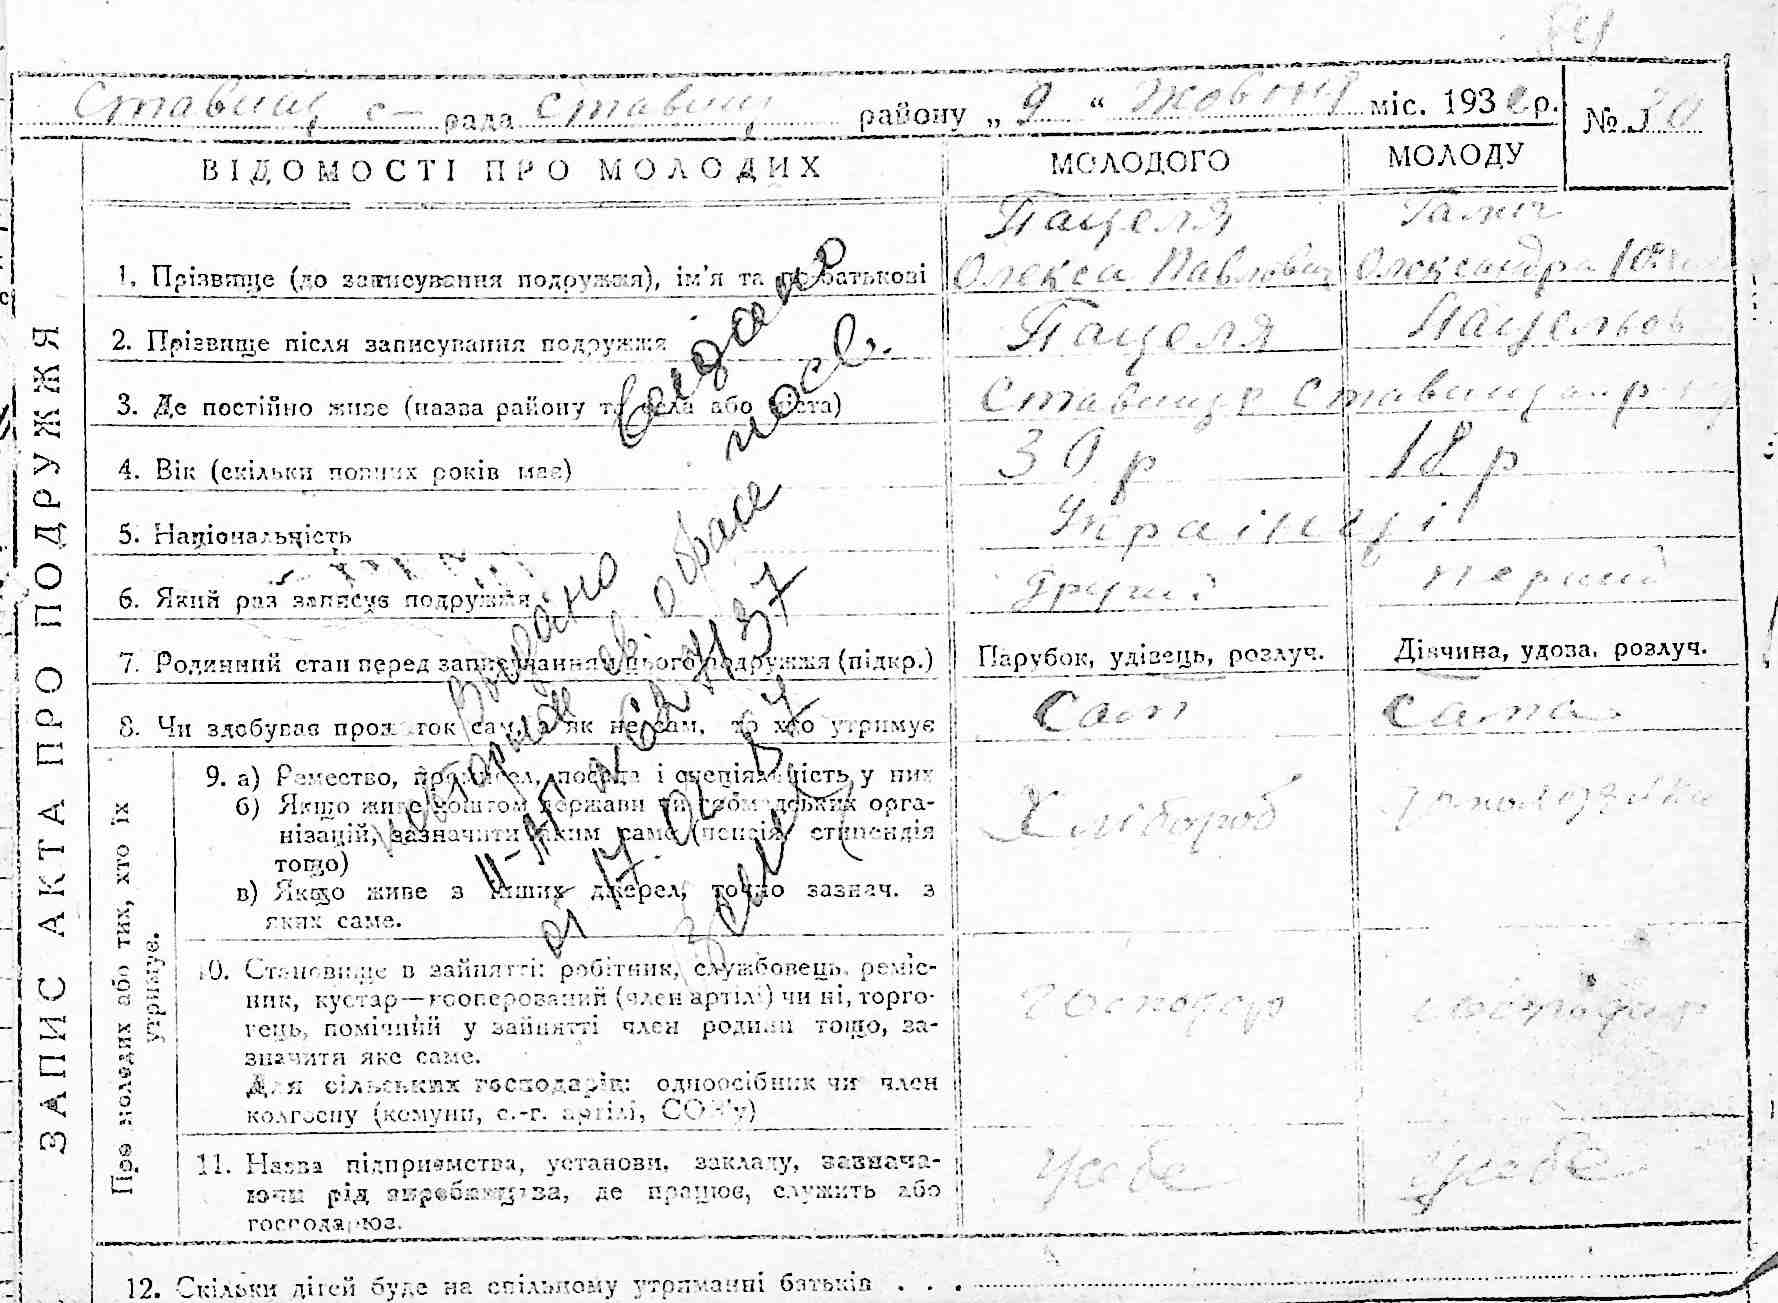 Ставищ с- рада Ставищ району „ 9 “ Жовтня міс. 193 р.
№ 30
ВІДОМОСТІ ПРО МОЛОДИХ
МОЛОДОГО
МОЛОДУ
ЗАПИС АКТА ПРО ПОДРУЖЖЯ
1. Прізвище (до записування подружжя), ім’я та по батькові
Пацеля
Олекса Павлович
Олександра
2. Прізвище після записування подружжя
Пацеля
3. Де постійно живе (назва району та села або міста)
Ставище Ставищан р-ну
4. Вік (скільки повних років має)
30 р
18 р
5. Національність
Українці
6. Який раз записує подружжя
Другий
перший
7. Родинний стан перед записуванням цього подружжя (підкр.)
Парубок, удівець, розлуч.
Дівчина, удова, розлуч.
8. Чи здобував прожиток сам, а як не сам, то хто утримує
Сам
Сама
Про молодих або тих, хто їх утримує.
9. а) Ремество, промисел, посада і спеціяльність у них
б) Якщо живе коштом держави чи громадських орга-
нізацій, зазначити яким саме (пенсія, стипендія
тощо)
в) Якщо живе з інших джерел, точно зазнач. з
яких саме.
Хлібороб
10. Становище в зайнятті: робітник, службовець, реміс-
ник, кустар—кооперований (член артілі) чи ні, торго-
вець, помічний у зайнятті член родини тощо, за-
значити яке саме.
Для сільських господарів: одноосібник чи член
колгоспу (комуни, с.-г. артілі, СОЗ’у)
Господар
господар
11. Назва підприємства, установи, закладу, зазнача-
ючи рід виробництва, де працює, служить або
господарює.
У себе
У себе
12. Скільки дітей буде на спільному утриманні батьків . . .
Видано
повторне св. о браке